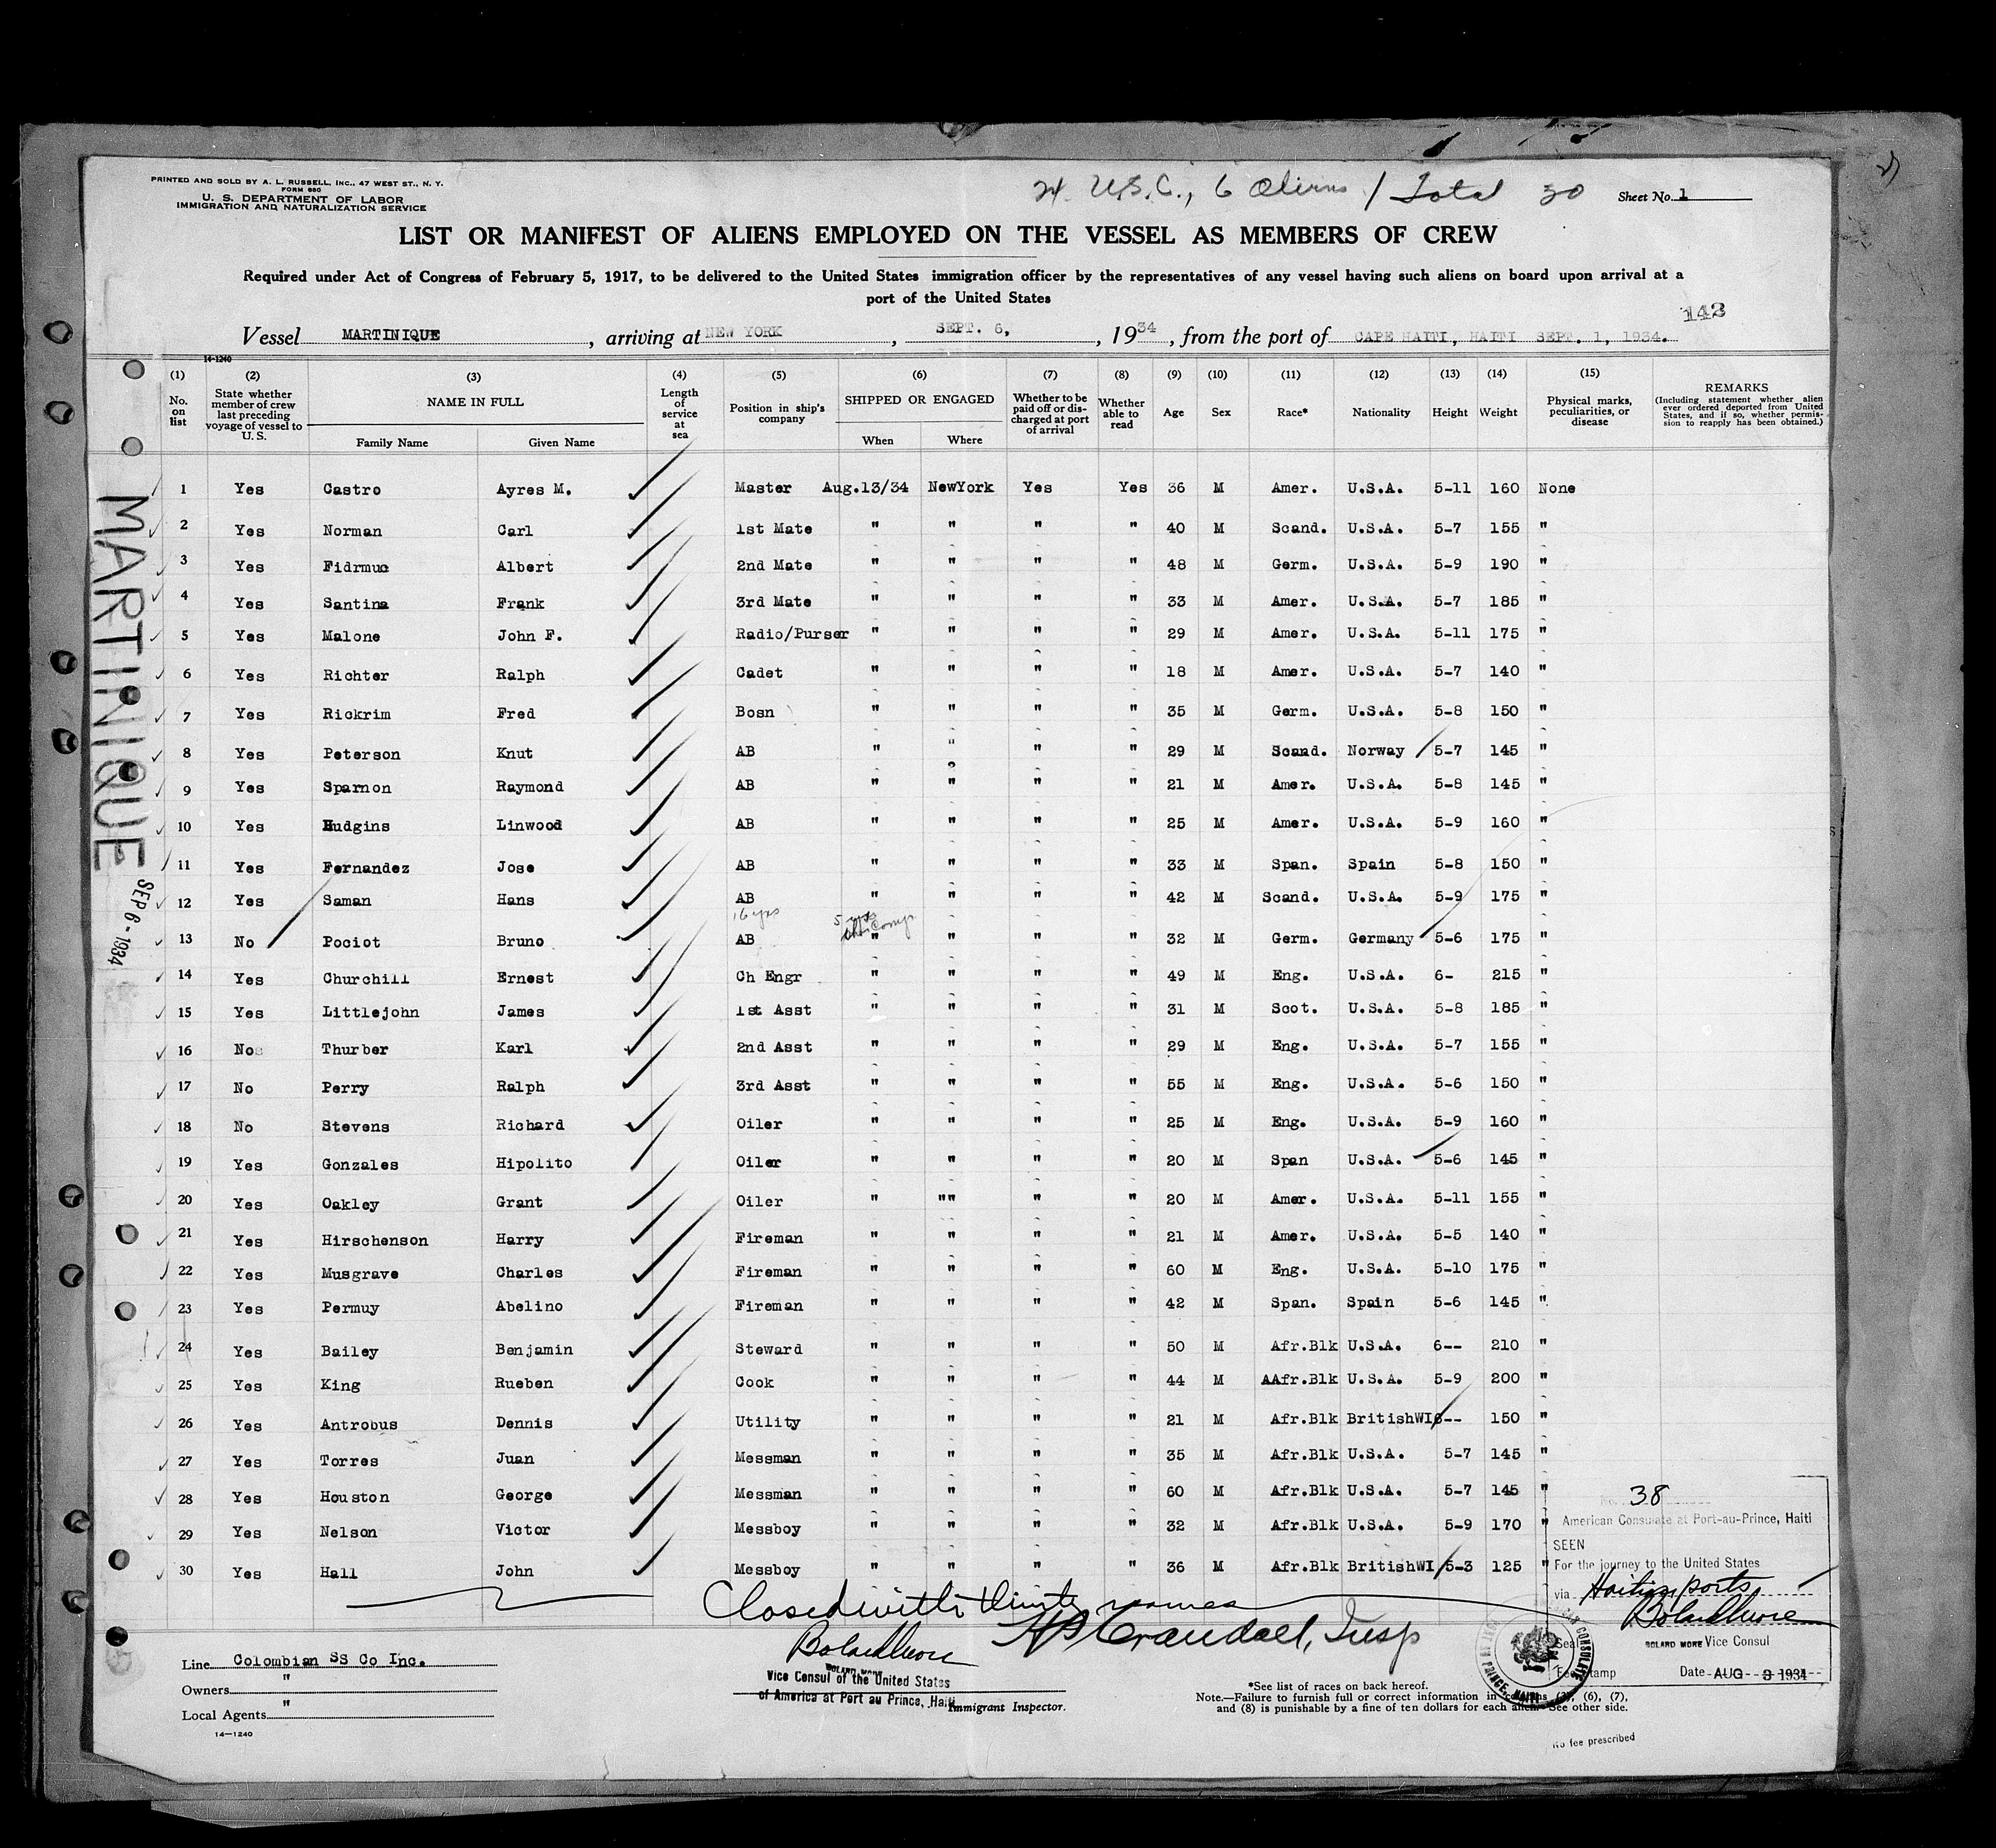 PRINTED AND SOLD BY A. L. RUSSELL, INC., 47 WEST ST., N. Y.
FORM 680
U. S. DEPARTMENT OF LABOR
IMMIGRATION AND NATURALIZATION SERVICE
24 U.S.C., 6 Aliens / Total 30
Sheet No. 1
LIST OR MANIFEST OF ALIENS EMPLOYED ON THE VESSEL AS MEMBERS OF CREW
Required under Act of Congress of February 5, 1917, to be delivered to the United States immigration officer by the representatives of any vessel having such aliens on board upon arrival at a
port of the United States
142
Vessel MARTINIQUE, arriving at NEW YORK, SEPT. 6, 1934, from the port of CAPE HAITI, HAITI SEPT. 1, 1934.
14-1240
(1) (2) (3) (4) (5) (6) (7) (8) (9) (10) (11) (12) (13) (14) (15)
No. on list
State whether member of crew last preceding voyage of vessel to U. S.
NAME IN FULL
Family Name
Given Name
Length of service at sea
Position in ship's company
SHIPPED OR ENGAGED
When
Where
Whether to be paid off or discharged at port of arrival
Whether able to read
Age
Sex
Race*
Nationality
Height
Weight
Physical marks, peculiarities, or disease
REMARKS
(Including statement whether alien ever ordered deported from United States, and if so, whether permission to reapply has been obtained.)
1 Yes Castro Ayres M. Master Aug.13/34 NewYork Yes Yes 36 M Amer. U.S.A. 5-11 160 None
2 Yes Norman Carl 1st Mate " " " " 40 M Scand. U.S.A. 5-7 155 "
3 Yes Fidrmuc Albert 2nd Mate " " " " 48 M Germ. U.S.A. 5-9 190 "
4 Yes Santina Frank 3rd Mate " " " " 33 M Amer. U.S.A. 5-7 185 "
5 Yes Malone John F. Radio/Purser " " " " 29 M Amer. U.S.A. 5-11 175 "
6 Yes Richter Ralph Cadet " " " " 18 M Amer. U.S.A. 5-7 140 "
7 Yes Rickrim Fred Bosn " " " " 35 M Germ. U.S.A. 5-8 150 "
8 Yes Peterson Knut AB " " " " 29 M Scand. Norway 5-7 145 "
9 Yes Sparnon Raymond AB " " " " 21 M Amer. U.S.A. 5-8 145 "
10 Yes Hudgins Linwood AB " " " " 25 M Amer. U.S.A. 5-9 160 "
11 Yes Fernandez Jose AB " " " " 33 M Span. Spain 5-8 150 "
12 Yes Saman Hans AB " " " " 42 M Scand. U.S.A. 5-9 175 "
16 yrs 5 yrs
13 No Pociot Bruno AB " " " " 32 M Germ. Germany 5-6 175 "
14 Yes Churchill Ernest Ch Engr " " " " 49 M Eng. U.S.A. 6- 215 "
15 Yes Littlejohn James 1st Asst " " " " 31 M Scot. U.S.A. 5-8 185 "
16 No Thurber Karl 2nd Asst " " " " 29 M Eng. U.S.A. 5-7 155 "
17 No Perry Ralph 3rd Asst " " " " 55 M Eng. U.S.A. 5-6 150 "
18 No Stevens Richard Oiler " " " " 25 M Eng. U.S.A. 5-9 160 "
19 Yes Gonzales Hipolito Oiler " " " " 20 M Span U.S.A. 5-6 145 "
20 Yes Oakley Grant Oiler " "" " " 20 M Amer. U.S.A. 5-11 155 "
21 Yes Hirschenson Harry Fireman " " " " 21 M Amer. U.S.A. 5-5 140 "
22 Yes Musgrave Charles Fireman " " " " 60 M Eng. U.S.A. 5-10 175 "
23 Yes Permuy Abelino Fireman " " " " 42 M Span. Spain 5-6 145 "
24 Yes Bailey Benjamin Steward " " " " 50 M Afr.Blk U.S.A. 6-- 210 "
25 Yes King Rueben Cook " " " " 44 M AAfr.Blk U.S.A. 5-9 200 "
26 Yes Antrobus Dennis Utility " " " " 21 M Afr.Blk BritishWI 6-- 150 "
27 Yes Torres Juan Messman " " " " 35 M Afr.Blk U.S.A. 5-7 145 "
28 Yes Houston George Messman " " " " 60 M Afr.Blk U.S.A. 5-7 145 "
29 Yes Nelson Victor Messboy " " " " 32 M Afr.Blk U.S.A. 5-9 170 "
30 Yes Hall John Messboy " " " " 36 M Afr.Blk BritishWI 5-3 125 "
MARTINIQUE
SEP 6 - 1934
Closed with thirty names
H Crandall, Insp
Bolard More
BOLARD MORE
Vice Consul of the United States
of America at Port au Prince, Haiti
Immigrant Inspector.
Line Colombian SS Co Inc.
Owners "
Local Agents "
14—1240
No. 38
American Consulate at Port-au-Prince, Haiti
SEEN
For the journey to the United States
via Haitian ports
Bolard More
Seal BOLARD MORE Vice Consul
Fee Stamp Date AUG - 3 - 1934
CONSULATE PRINCE, HAITI
*See list of races on back hereof.
Note.—Failure to furnish full or correct information in columns (3), (6), (7),
and (8) is punishable by a fine of ten dollars for each alien. See other side.
No fee prescribed